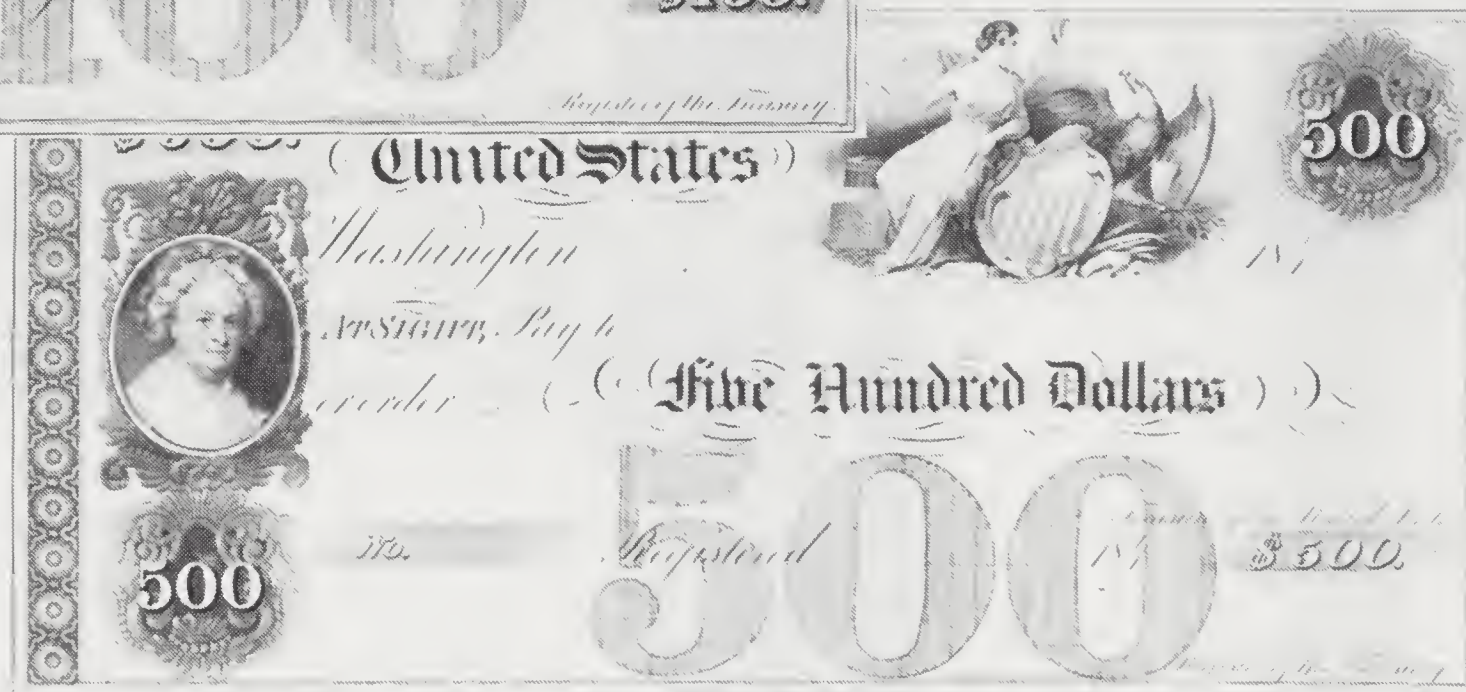 $100.
Register of the Treasury
500
United States
Washington 18
At Sight, Pay to
or order
Five Hundred Dollars
No. Registered 18 $500.
500